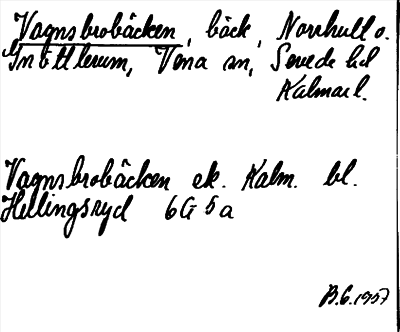 Vagnsbrobäcken, bäck, Norrhult o.
Vena sn, Sevede hd
Kalmar l.
Vagnsbrobäcken ek. Kalm. bl.
Hellingsryd 6G 5a
B.G. 1957